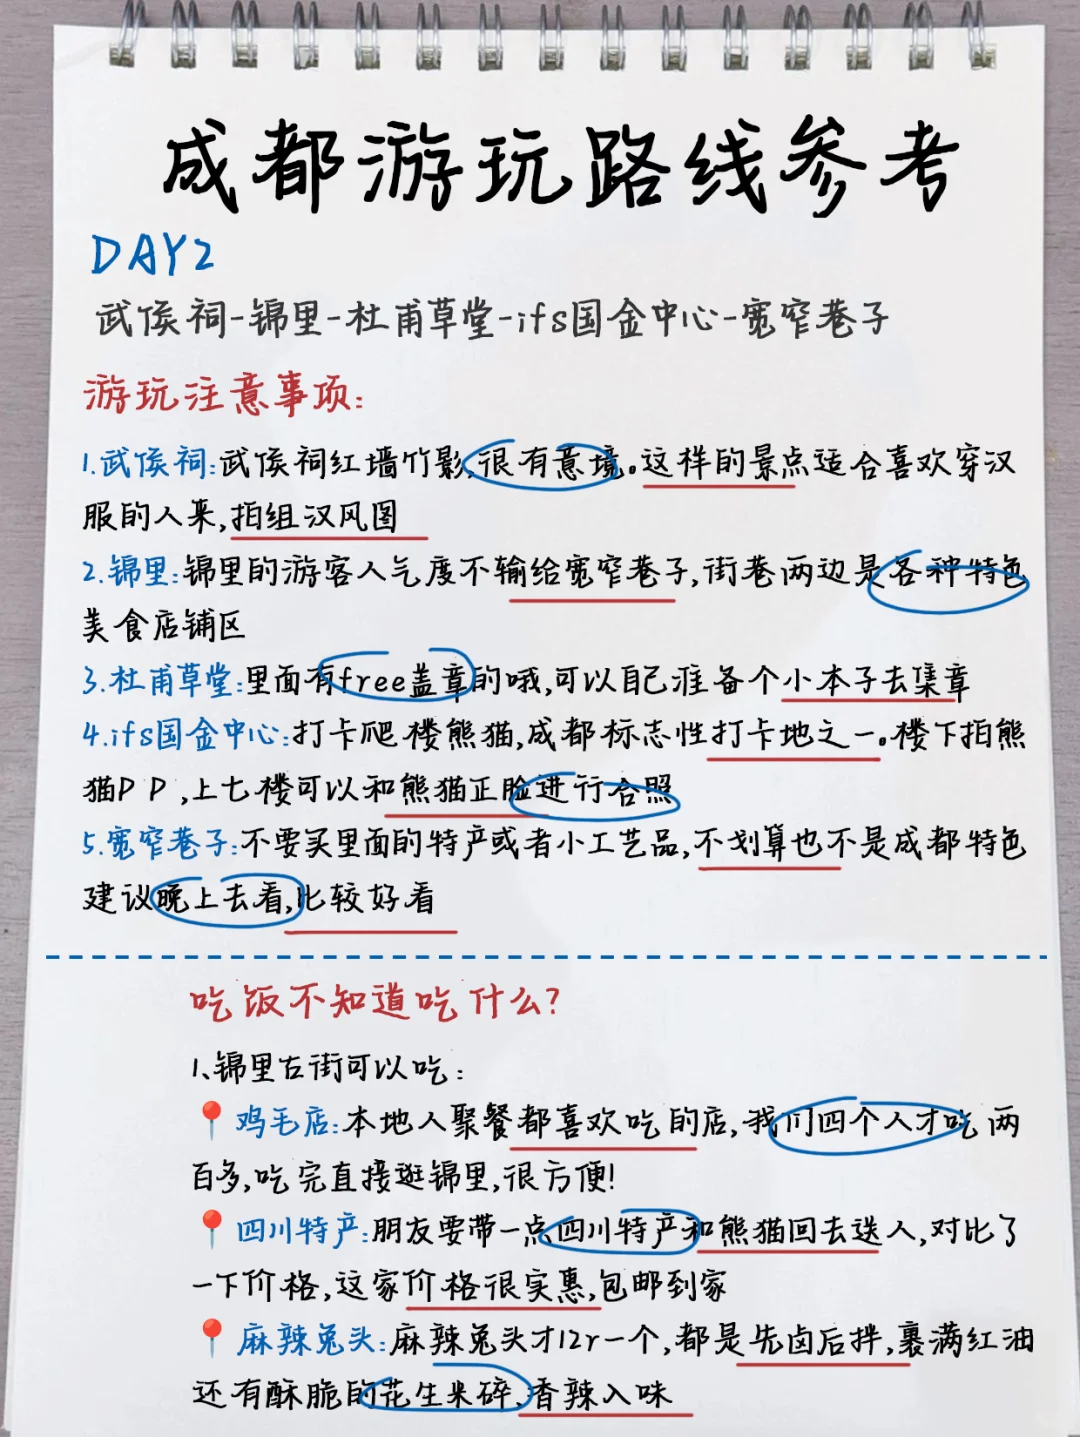 成都游玩路线参考
DAY2
武侯祠-锦里-杜甫草堂-ifs国金中心-宽窄巷子
游玩注意事项:
1.武侯祠:武侯祠红墙竹影,很有意境。这样的景点适合喜欢穿汉
服的人来,拍组汉风图
2.锦里:锦里的游客人气度不输给宽窄巷子,街巷两边是各种特色
美食店铺区
3.杜甫草堂:里面有free盖章的哦,可以自己准备个小本子去集章
4.ifs国金中心:打卡爬楼熊猫,成都标志性打卡地之一。楼下拍熊
猫PP,上七楼可以和熊猫正脸进行合照
5.宽窄巷子:不要买里面的特产或者小工艺品,不划算也不是成都特色
建议晚上去看,比较好看
吃饭不知道吃什么?
1、锦里古街可以吃:
📍鸡毛店:本地人聚餐都喜欢吃的店,我们四个人才吃两
百多,吃完直接逛锦里,很方便!
📍四川特产:朋友要带一点四川特产和熊猫回去送人,对比了
一下价格,这家价格很实惠,包邮到家
📍麻辣兔头:麻辣兔头才12r一个,都是先卤后拌,裹满红油
还有酥脆的花生米碎,香辣入味